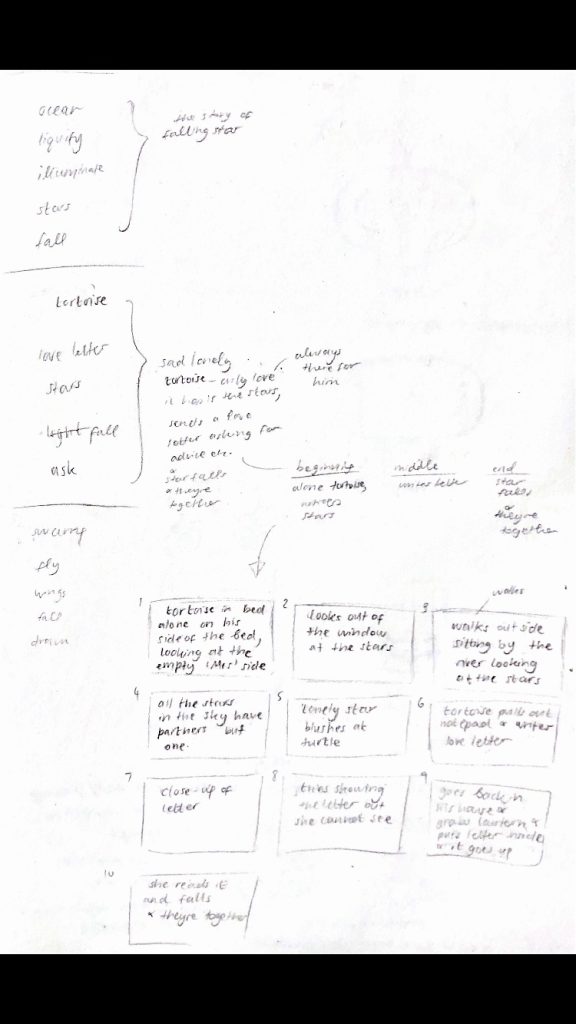 ocean
liquify
illuminate
stars
fall
the story of
falling star
tortoise
love letter
stars
light fall
ask
sad lonely
tortoise - only love
it has is the stars,
sends a love
letter asking for
advice etc.
&
star falls
& theyre
together
always
there for
him
beginning
alone tortoise,
notices
stars
middle
writes letter
end
star
falls
&
theyre
together
swarm
fly
wings
fall
drown
1
tortoise in bed
alone on his
side of the bed,
looking at the
empty 'Mrs' side
2
looks out of
the window
at the stars
3
walks
walks outside
sitting by the
river looking
at the stars
4
all the stars
in the sky have
partners but
one.
5
lonely star
blushes at
turtle
6
tortoise pulls out
notepad & writes
love letter
7
close-up of
letter
8
tries showing
the letter but
she cannot see
9
goes back in
his house &
grabs lantern &
puts letter inside
& it goes up
10
she reads it
and falls
& theyre together